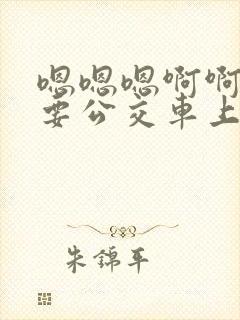 嗯嗯嗯啊啊
要公交车上
朱锦平